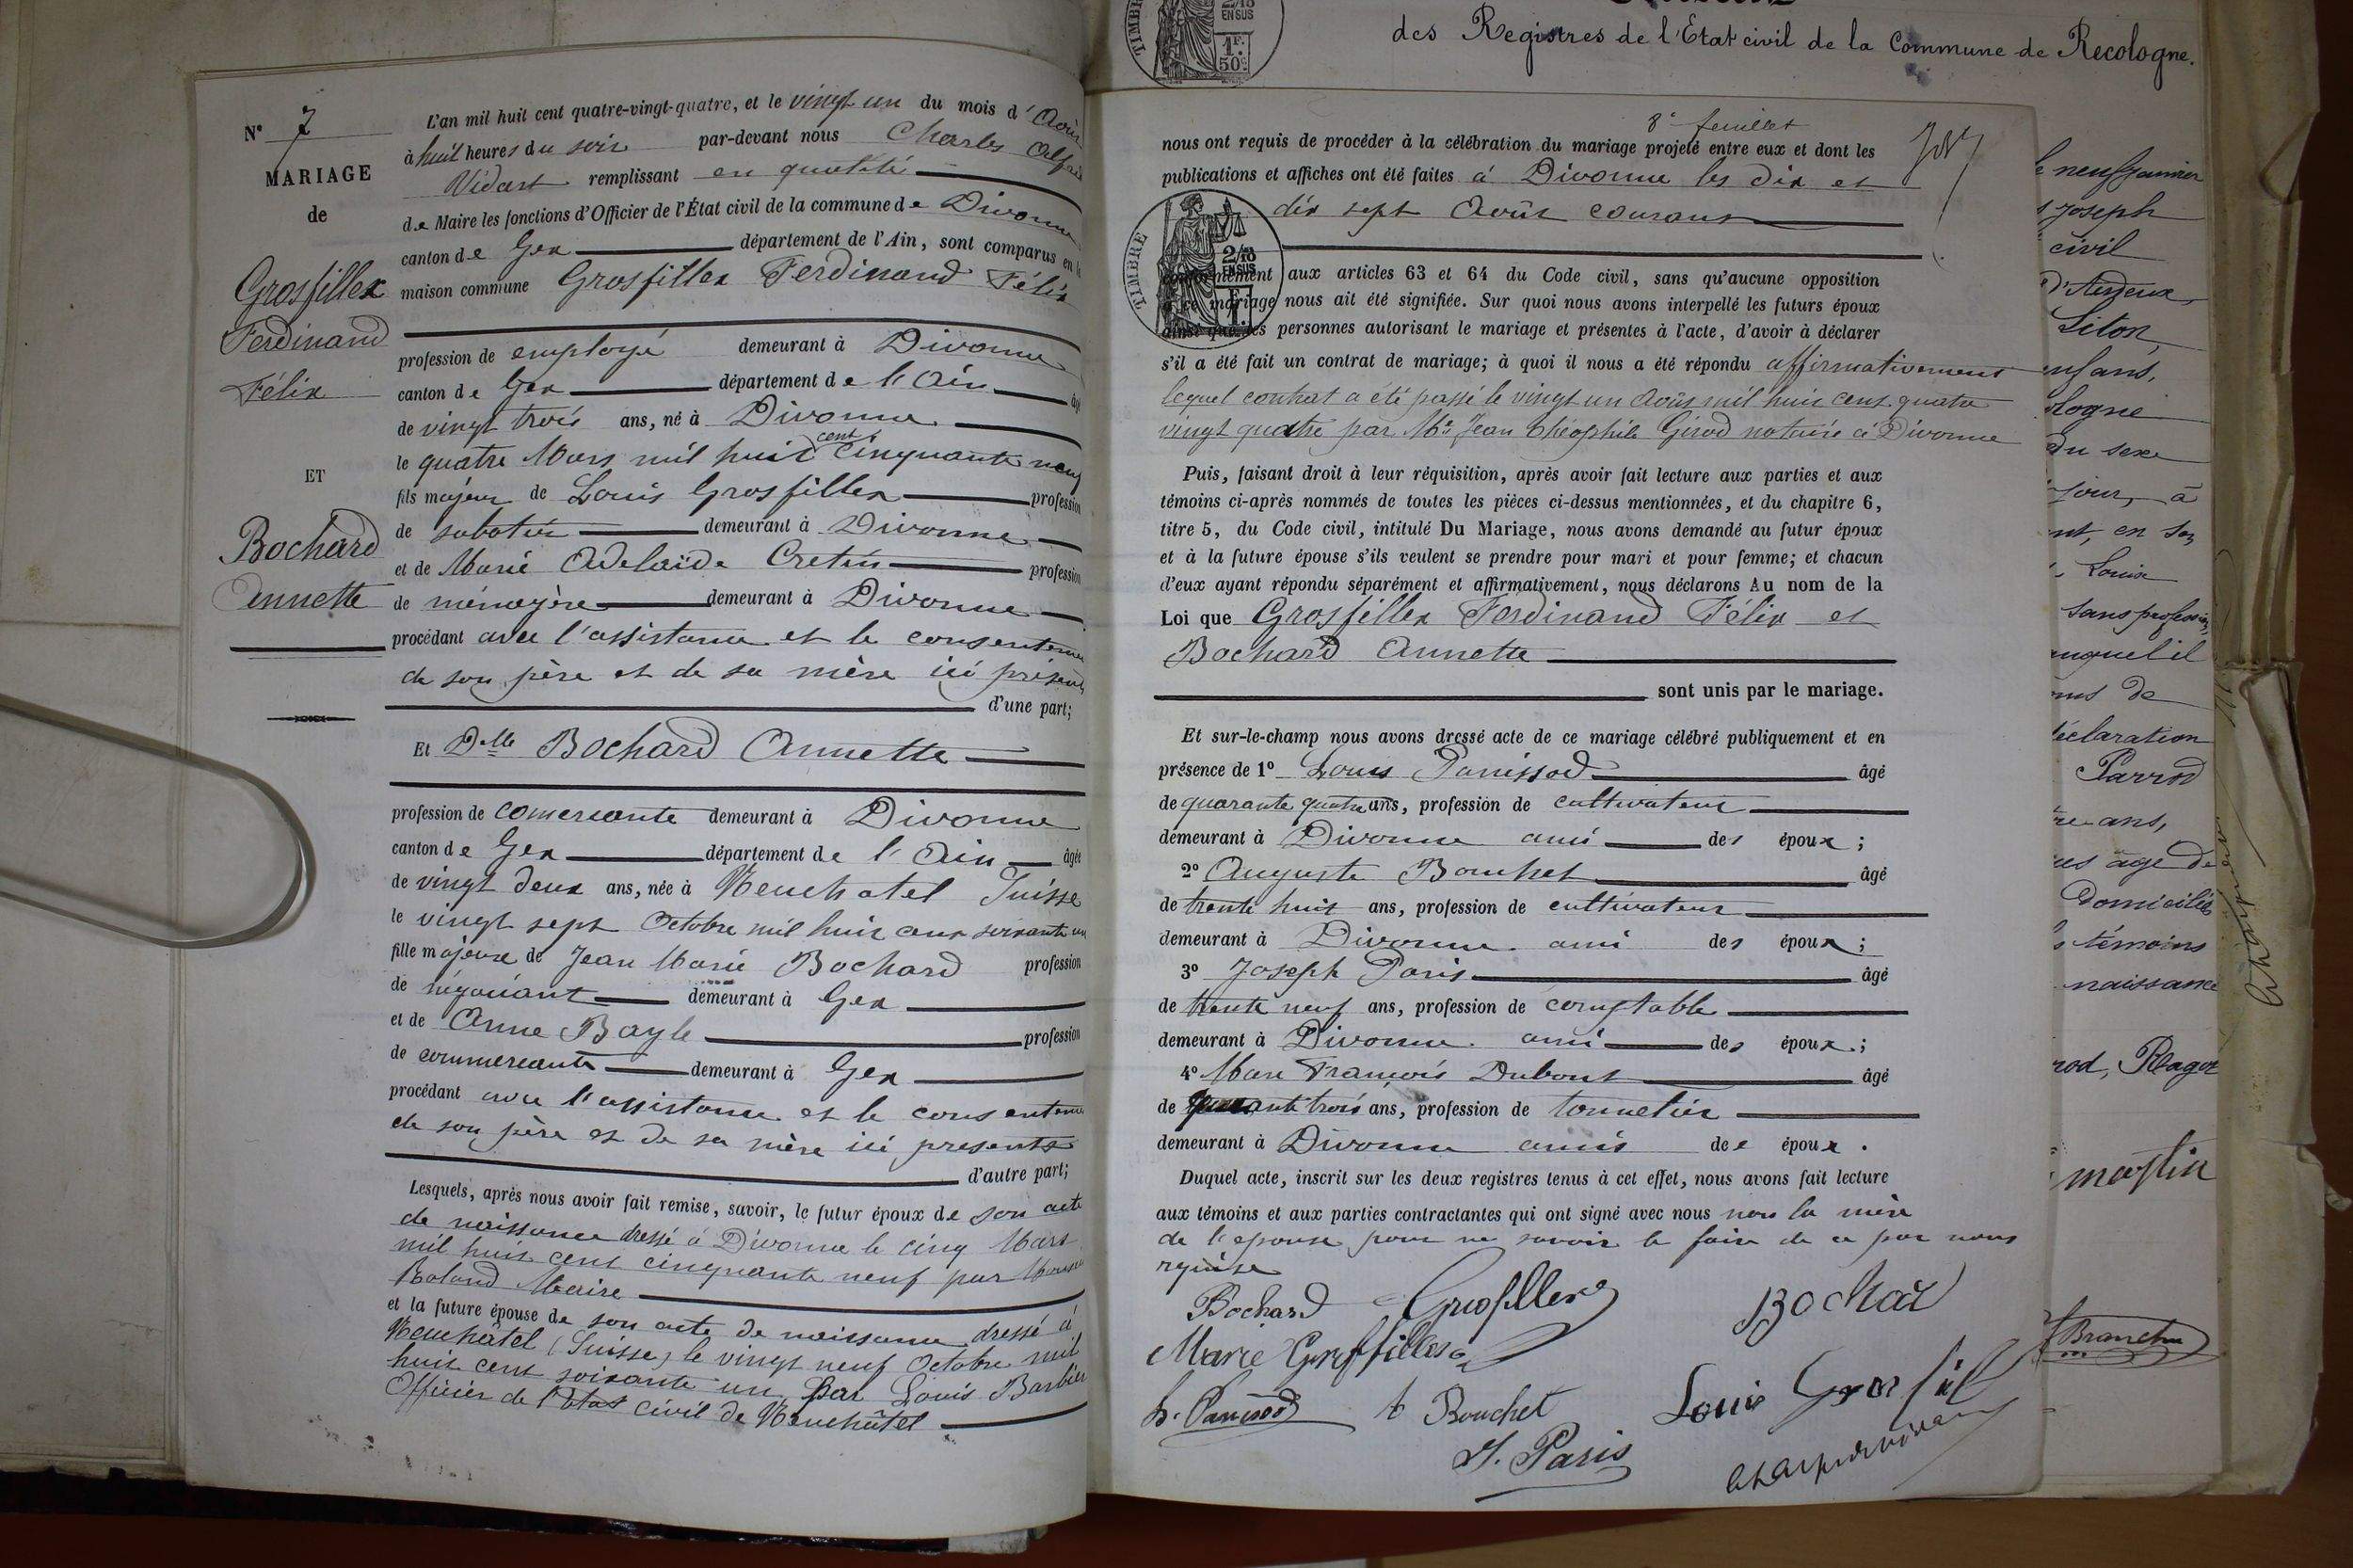 N° 7
MARIAGE
de
Grosfillex
Ferdinand
Félix
ET
Bochard
Annette
L'an mil huit cent quatre-vingt-quatre, et le vingt un du mois d'Août
à huit heures du soir par-devant nous Charles Alfred
Vidart remplissant en qualité
de Maire les fonctions d'Officier de l'État civil de la commune de Divonne
canton de Gex département de l'Ain, sont comparus en la
maison commune Grosfillex Ferdinand Félix
profession de employé demeurant à Divonne
canton de Gex département de l'Ain âgé
de vingt trois ans, né à Divonne
le quatre Mars mil huit cent cinquante neuf
fils majeur de Louis Grosfillex profession
de sabotier demeurant à Divonne
et de Marie Adelaïde Cretin profession
de ménagère demeurant à Divonne
procédant avec l'assistance et le consentement
de son père et de sa mère ici présents
d'une part;
Et Delle Bochard Annette
profession de comersante demeurant à Divonne
canton de Gex département de l'Ain âgée
de vingt deux ans, née à Neuchatel Suisse
le vingt sept Octobre mil huit cent soixante un
fille majeure de Jean Marie Bochard profession
de négociant demeurant à Gex
et de Anne Bayle profession
de commercante demeurant à Gex
procédant avec l'assistance et le consentement
de son père et de sa mère ici presents
d'autre part;
Lesquels, après nous avoir fait remise, savoir, le futur époux de son acte
de naissance dressé à Divonne le cinq Mars
mil huit cent cinquante neuf par Monsieur
Roland Maire
et la future épouse de son acte de naissance dressé à
Neuchâtel (Suisse) le vingt neuf Octobre mil
huit cent soixante un par Louis Barbier
Officier de l'Etat civil de Neuchâtel
des Registres de l'Etat civil de la Commune de Recologne.
8e feuillet
nous ont requis de procéder à la célébration du mariage projeté entre eux et dont les
publications et affiches ont été faites à Divonne les dix et
dix sept Août courant
TIMBRE
2/10
EN SUS
conformément aux articles 63 et 64 du Code civil, sans qu'aucune opposition
à ce mariage nous ait été signifiée. Sur quoi nous avons interpellé les futurs époux
ainsi que les personnes autorisant le mariage et présentes à l'acte, d'avoir à déclarer
s'il a été fait un contrat de mariage; à quoi il nous a été répondu affirmativement
lequel contrat a été passé le vingt un Août mil huit cent quatre
vingt quatre par Me Jean Théophile Girod notaire à Divonne
Puis, faisant droit à leur réquisition, après avoir fait lecture aux parties et aux
témoins ci-après nommés de toutes les pièces ci-dessus mentionnées, et du chapitre 6,
titre 5, du Code civil, intitulé Du Mariage, nous avons demandé au futur époux
et à la future épouse s'ils veulent se prendre pour mari et pour femme; et chacun
d'eux ayant répondu séparément et affirmativement, nous déclarons Au nom de la
Loi que Grosfillex Ferdinand Félix et
Bochard Annette
sont unis par le mariage.
Et sur-le-champ nous avons dressé acte de ce mariage célébré publiquement et en
présence de 1° Louis Panissod âgé
de quarante quatre ans, profession de cultivateur
demeurant à Divonne ami des époux;
2° Auguste Bouchet âgé
de trente huit ans, profession de cultivateur
demeurant à Divonne ami des époux;
3° Joseph Paris âgé
de trente neuf ans, profession de comptable
demeurant à Divonne ami des époux;
4° Marc François Dubout âgé
de quarante trois ans, profession de tonnelier
demeurant à Divonne amis des époux.
Duquel acte, inscrit sur les deux registres tenus à cet effet, nous avons fait lecture
aux témoins et aux parties contractantes qui ont signé avec nous non la mère
de l'épouse pour ne savoir le faire de ce par nous
requise
Bochard Grosfillex Bochard
Marie Grosfillex
L. Panissod A Bouchet Louis Grosfil
J. Paris
le neuf janvier
Joseph
civil
Liton,
enfans,
du sexe
jour, à
Louise
sans profession,
auquel il
déclaration
Parrod
ans,
âgé de
domiciliés
témoins
naissance
martin